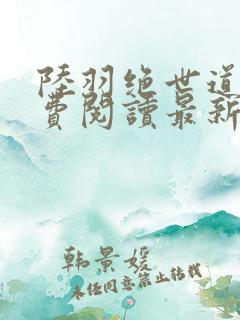 陸羽绝世道
費閱讀最新
韩景媛
未经同意禁止转载